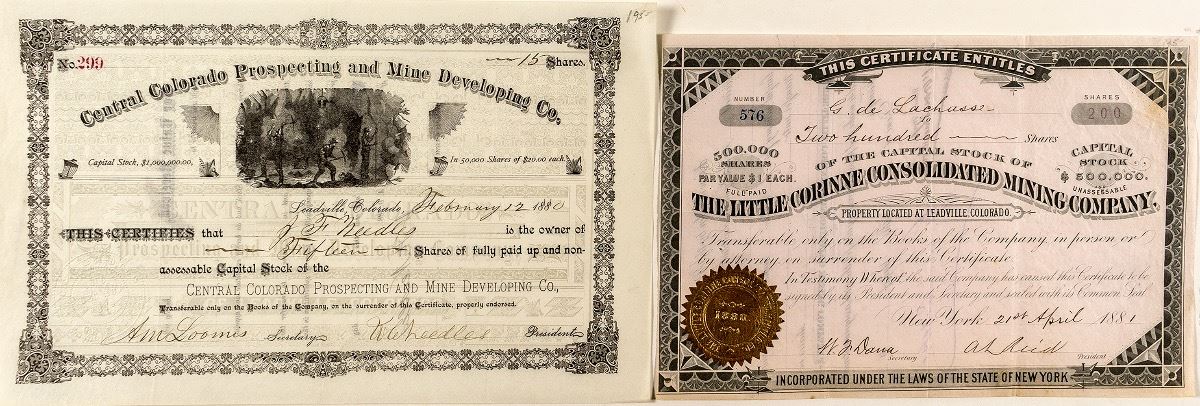 1955
No. 299
15 Shares.
Central Colorado Prospecting and Mine Developing Co,
Capital Stock, $1,000,000.00,
In 50,000 Shares of $20.00 each
Leadville, Colorado, February 12 1880
THIS CERTIFIES that J F Needles is the owner of
Fifteen Shares of fully paid up and non-
assessable Capital Stock of the
CENTRAL COLORADO PROSPECTING AND MINE DEVELOPING CO.,
Transferable only on the Books of the Company, on the surrender of this Certificate, properly endorsed.
A M Loomis Secretary Needles President
THIS CERTIFICATE ENTITLES
NUMBER
576
G. de Lachasse
SHARES
200
to
Two hundred Shares
500,000
SHARES
PAR VALUE $1 EACH.
FULL PAID
OF THE CAPITAL STOCK OF
CAPITAL
STOCK
$500,000.
UNASSESSABLE
THE LITTLE CORINNE CONSOLIDATED MINING COMPANY,
PROPERTY LOCATED AT LEADVILLE, COLORADO.
Transferable only on the Books of the Company, in person or
by attorney on surrender of this Certificate.
In Testimony Whereof, the said Company has caused this Certificate to be
signed by its President and Secretary and sealed with its Common Seal
New York 21st April 1881
1880
W. F. Dana Secretary A L Reid President
INCORPORATED UNDER THE LAWS OF THE STATE OF NEW YORK